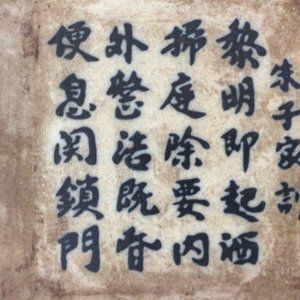 朱子家訓
黎明即起洒
掃庭除要内
外整洁既昏
便息関鎖門